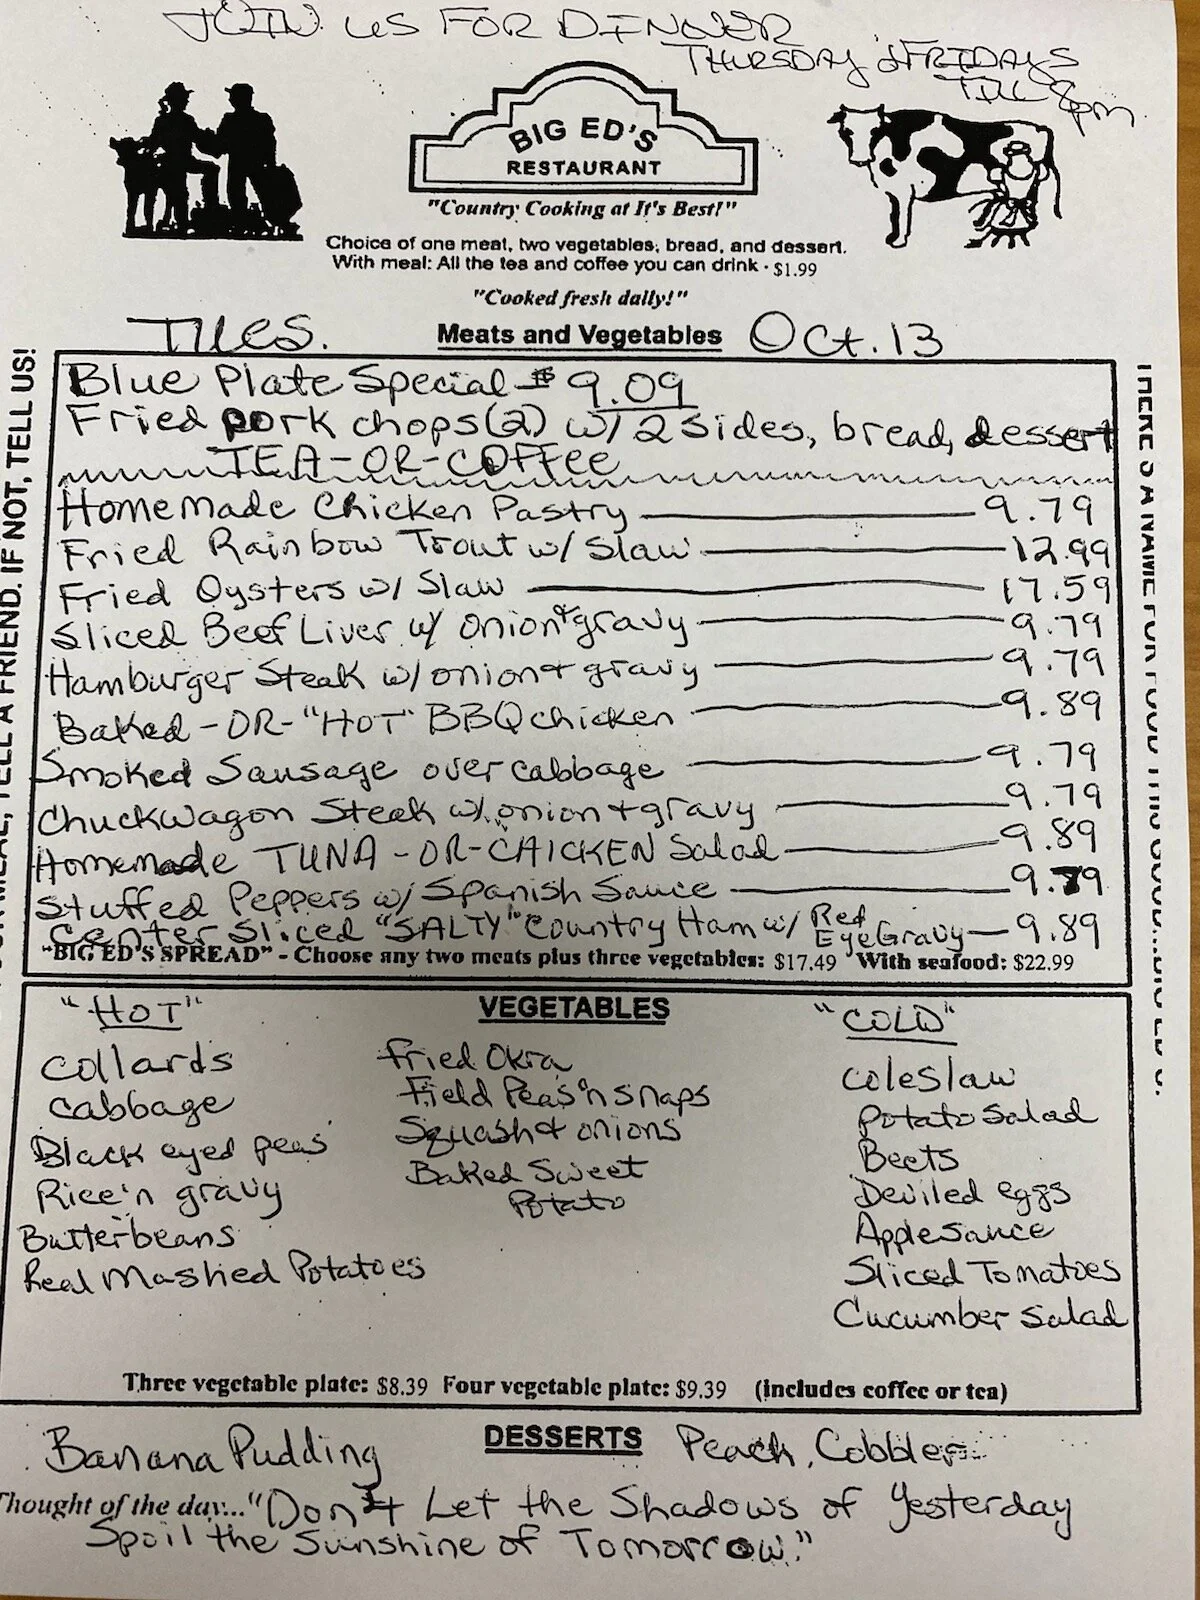 JOIN US FOR DINNER
THURSDAY & FRIDAYS
TILL 8pm
BIG ED'S
RESTAURANT
"Country Cooking at It's Best!"
Choice of one meat, two vegetables, bread, and dessert.
With meal: All the tea and coffee you can drink · $1.99
"Cooked fresh daily!"
Tues. Meats and Vegetables Oct. 13
Blue Plate Special $9.09
Fried pork chops (2) w/ 2 sides, bread, dessert
TEA-OR-COFFEE
Homemade Chicken Pastry 9.79
Fried Rainbow Trout w/ Slaw 12.99
Fried Oysters w/ Slaw 17.59
Sliced Beef Liver w/ onion & gravy 9.79
Hamburger Steak w/ onion & gravy 9.79
Baked -OR- "HOT" BBQ chicken 9.89
Smoked Sausage over cabbage 9.79
Chuckwagon Steak w/ onion & gravy 9.79
Homemade TUNA -OR- CHICKEN Salad 9.89
Stuffed Peppers w/ Spanish Sauce 9.79
Center Sliced "SALTY" Country Ham w/ Red Eye Gravy 9.89
"BIG ED'S SPREAD" - Choose any two meats plus three vegetables: $17.49 With seafood: $22.99
"HOT" VEGETABLES "COLD"
Collards
Cabbage
Black eyed peas
Rice 'n gravy
Butterbeans
Real Mashed Potatoes
Fried Okra
Field Peas 'n snaps
Squash & onions
Baked Sweet
Potato
Coleslaw
Potato Salad
Beets
Deviled eggs
Applesauce
Sliced Tomatoes
Cucumber Salad
Three vegetable plate: $8.39 Four vegetable plate: $9.39 (includes coffee or tea)
Banana Pudding DESSERTS Peach Cobbler
Thought of the day... "Don't Let the Shadows of Yesterday
Spoil the Sunshine of Tomorrow."
MEAL, TELL A FRIEND. IF NOT, TELL US!
THERE'S A NAME FOR FOOD THIS GOOD...BIG ED'S.